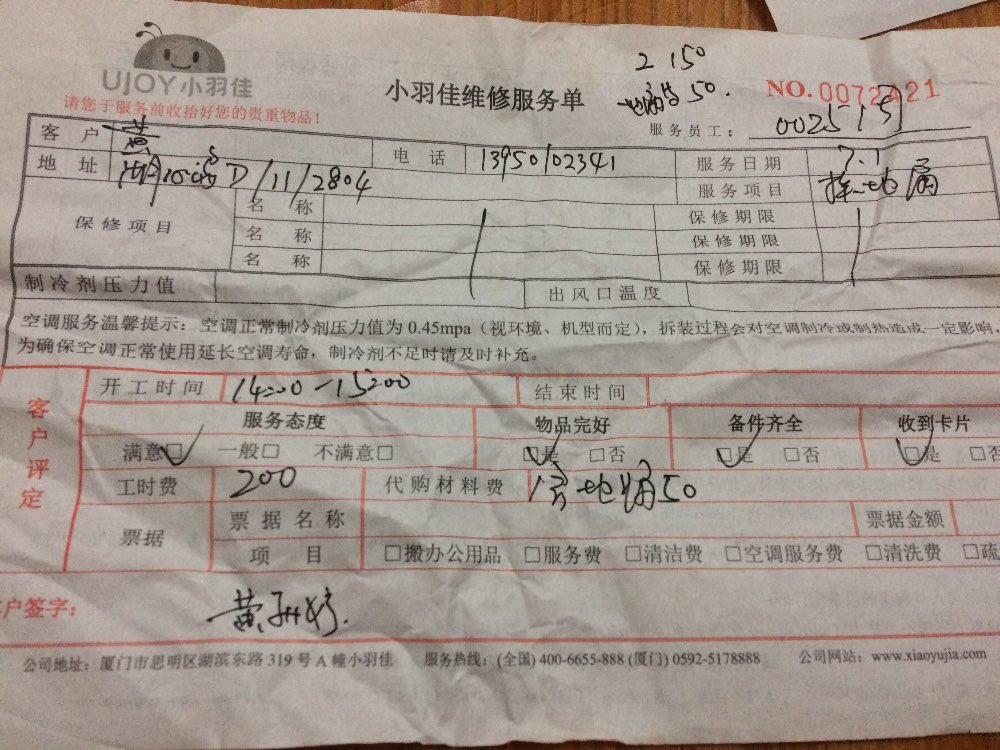 UJOY小羽佳
请您于服务前收拾好您的贵重物品！
小羽佳维修服务单
2 150
50.
NO. 0072421
服务员工： 002515
客户 黄 电话 13950102341 服务日期 7.1
地址 D/11/2804 服务项目
保修项目 名称 保修期限
名称 保修期限
名称 保修期限
制冷剂压力值 出风口温度
空调服务温馨提示：空调正常制冷剂压力值为 0.45mpa（视环境、机型而定），拆装过程会对空调制冷或制热造成一定影响，
为确保空调正常使用延长空调寿命，制冷剂不足时请及时补充。
客户评定
开工时间 14:00-15:00 结束时间
服务态度 物品完好 备件齐全 收到卡片
满意□ 一般□ 不满意□ □是 □否 □是 □否 □是 □否
工时费 200 代购材料费 地漏50
票据 票据名称 票据金额
项目 □搬办公用品 □服务费 □清洁费 □空调服务费 □清洗费 □疏
户签字： 黄
公司地址：厦门市思明区湖滨东路 319 号 A 幢小羽佳 服务热线：(全国) 400-6655-888 (厦门) 0592-5178888 公司网站：www.xiaoyujia.com